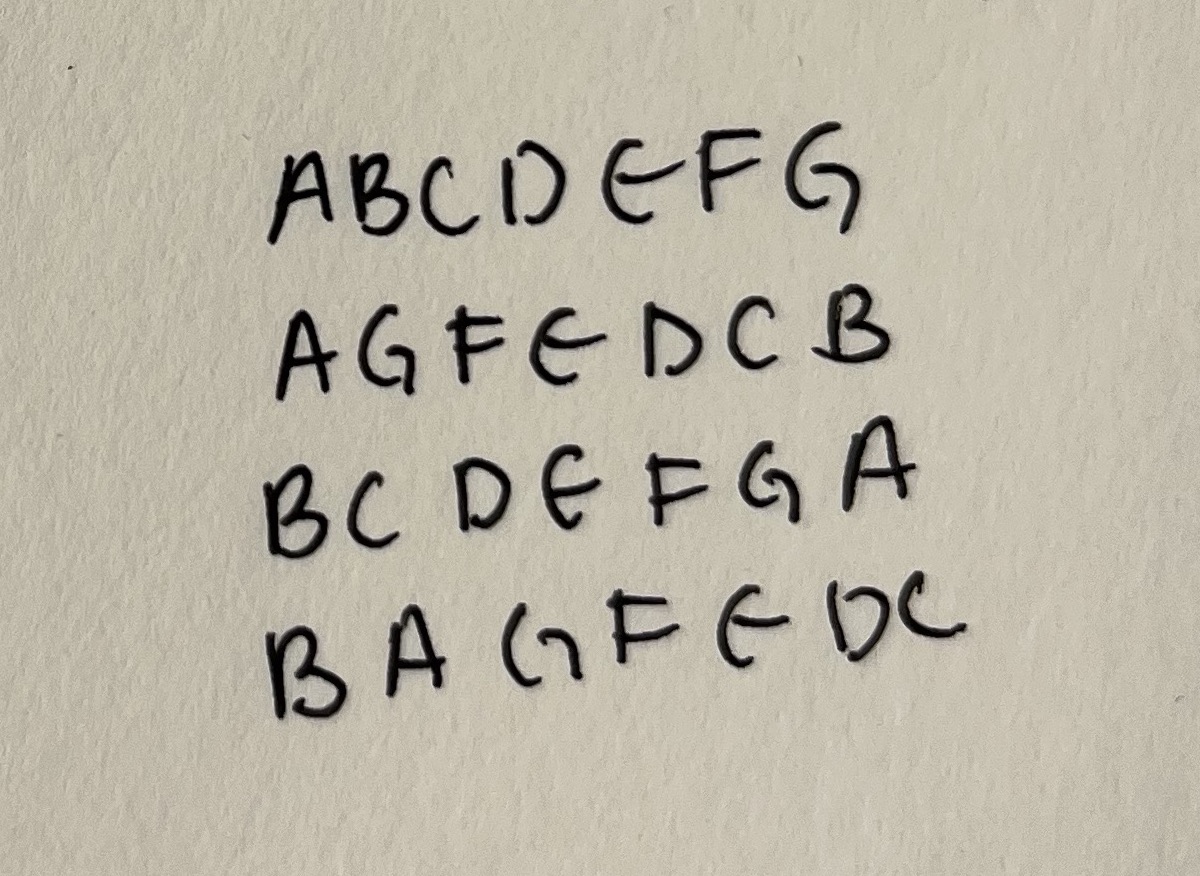 A B C D E F G
A G F E D C B
B C D E F G A
B A G F E D C